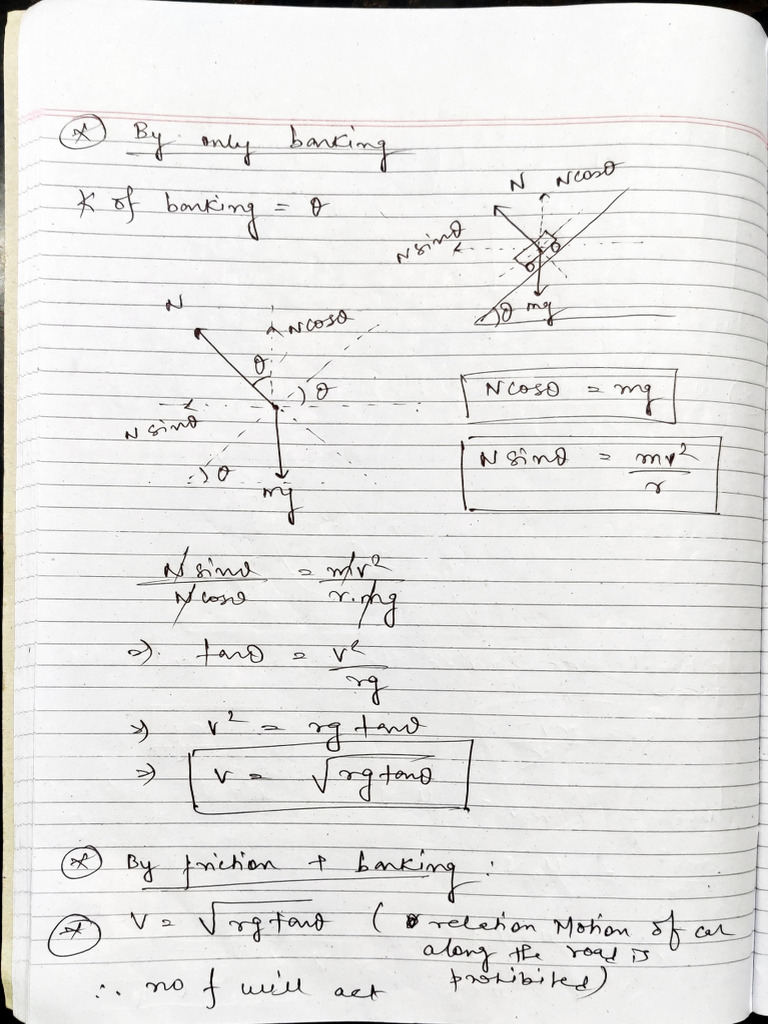 ⊛ By only banking
∠ of banking = θ
N N cosθ
N sinθ
θ mg
N
N cosθ
θ
θ
N sinθ
θ
mg
N cosθ = mg
N sinθ = mv²/r
N sinθ/N cosθ = mv²/r.mg
⇒ tanθ = v²/rg
⇒ v² = rg tanθ
⇒ v = √rg tanθ
⊛ By friction + banking :
⊛ V = √rg tanθ ( relation Motion of car
along the road is
prohibited)
∴ no f will act